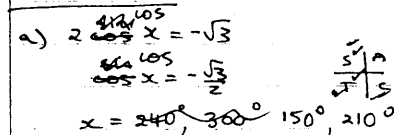 a) 2 cos x = -√3
cos x = -√3/2
S A
T C
x = 240°, 300° 150°, 210°